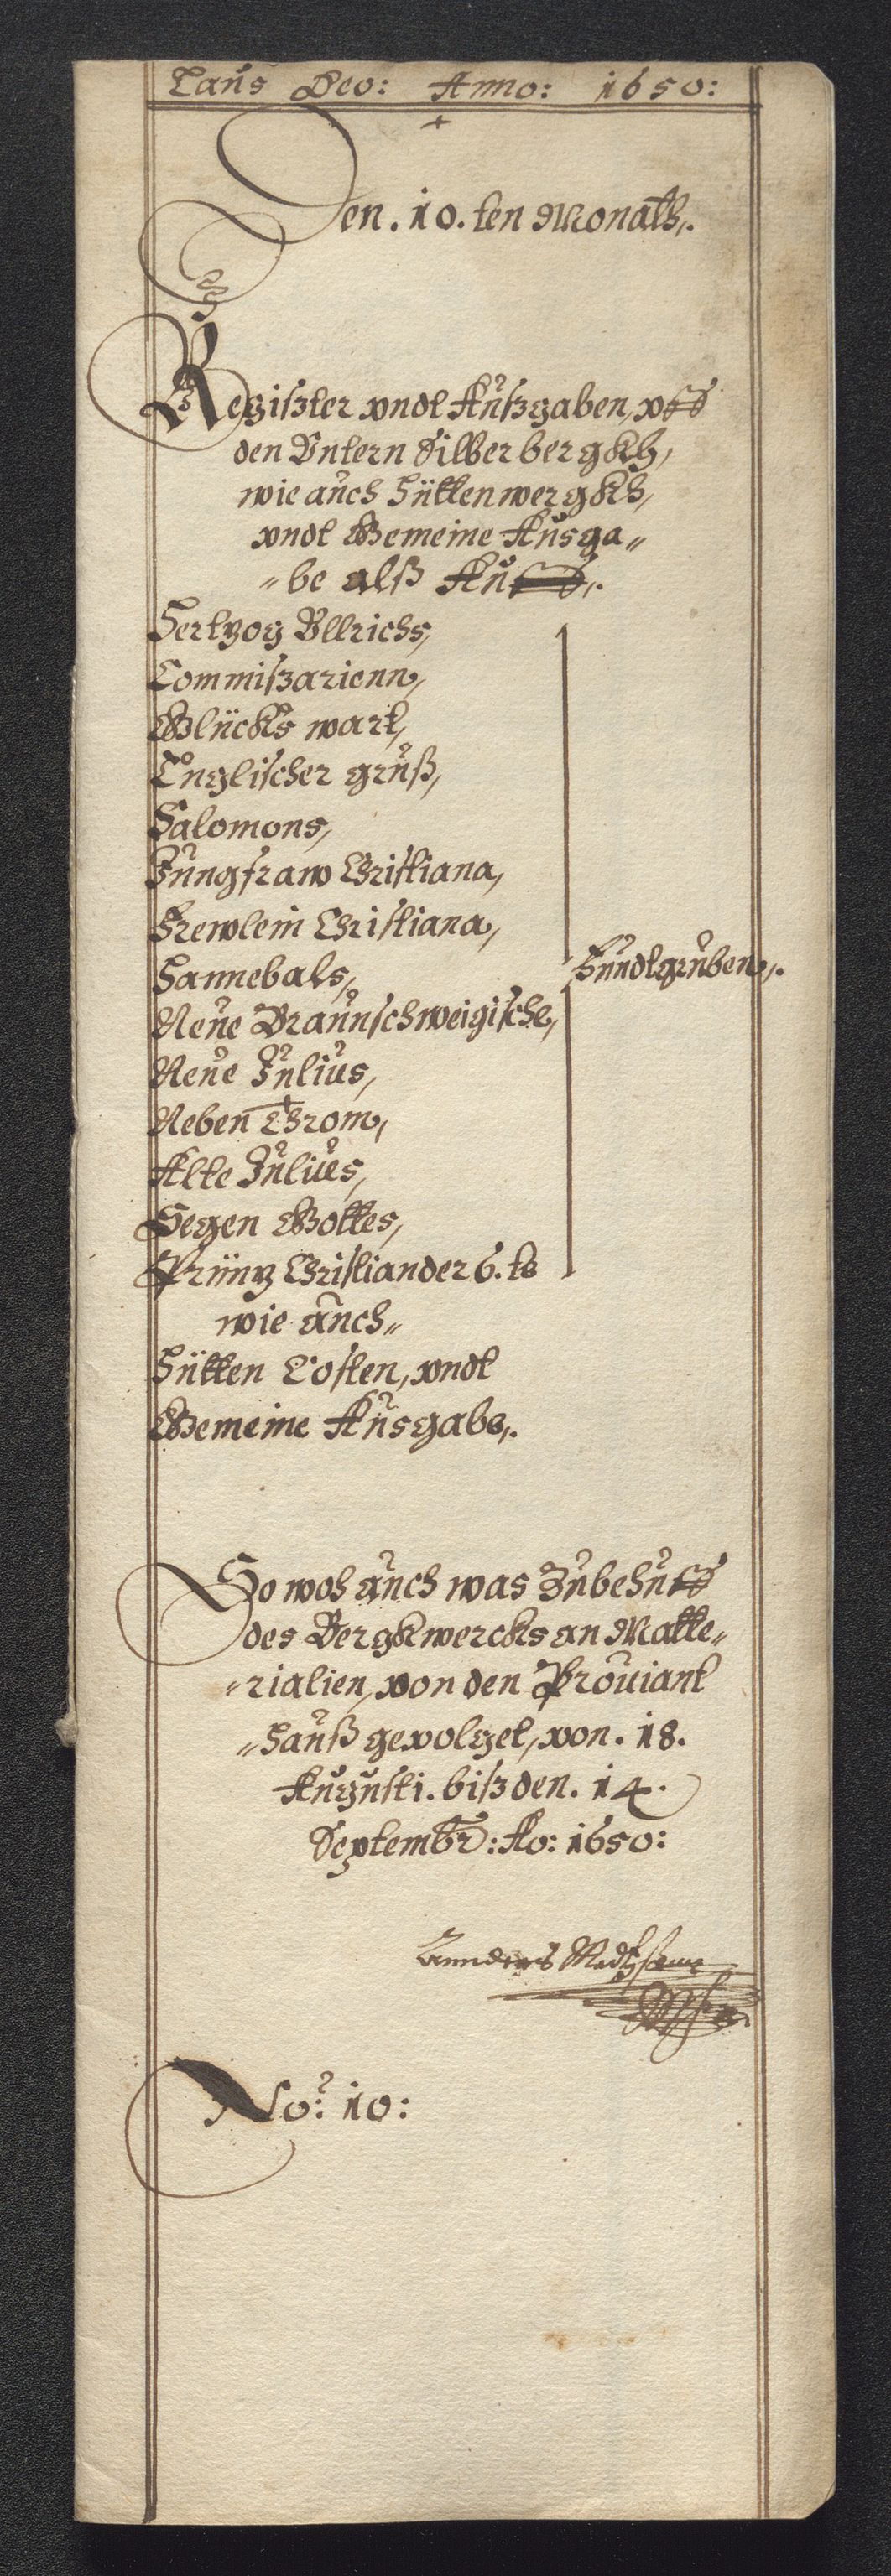 Laus Deo: Anno: 1650:
Den. 10. ten Monath,.
Regißter vndt Außgaben, vff
den Vntern Silberbergkh,
wie auch Hüttenwergkh,
vndt Gemeine Ausga„
„be alß Auff,.
Hertzog Vllrichs,
Commißarienn,
Glücks wart,
Englischer gruß,
Salomons,
Jungfraw Christiana,
Frewlein Christiana,
Hannebals,
Fundtgruben,.
Neue Braunschweigische,
Neue Julius,
Neben Chron,
Alte Julius,
Segen Gottes,
Printz Christian der 6. te
wie auch„
Hütten Costen, vndt
Gemeine Ausgabe,.
So woh auch was Zubehuff
des Bergkwercks an Matte„
„rialien, von den Prouiant
„hauß gevolget, von. 18.
Augusti. biß den. 14.
Septembr: Ao: 1650:
No: 10: